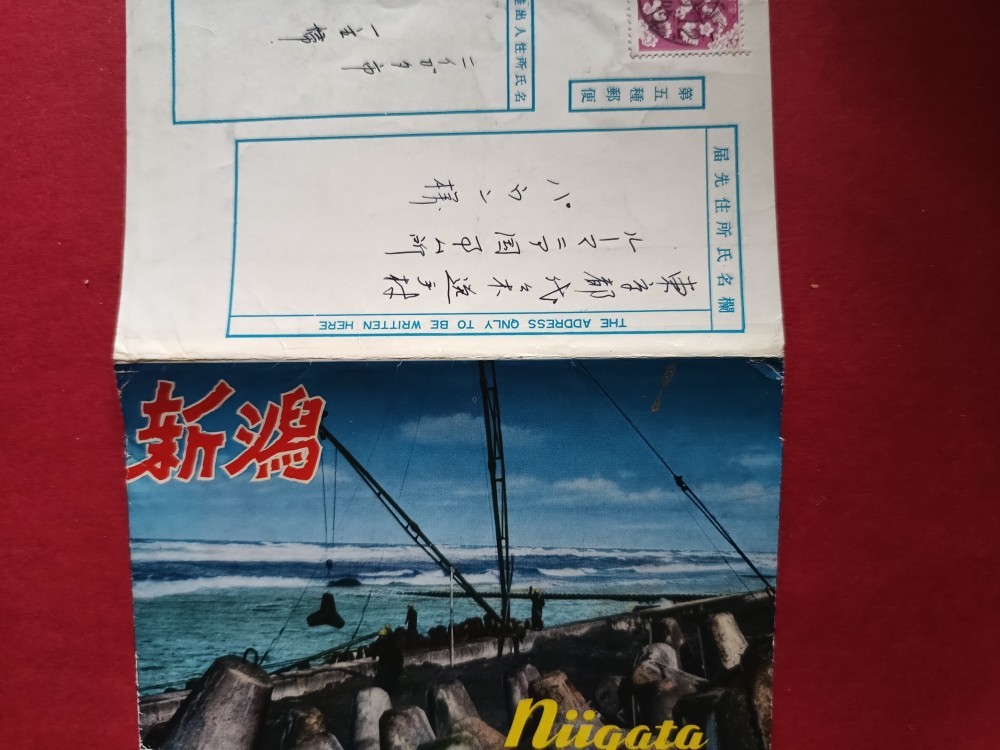 差出人住所氏名
ニイガタ市
一主橋
第五種郵便
届先住所氏名欄
東京都代々木選手村
ルーマニア国事ム所
パウン様
THE ADDRESS ONLY TO BE WRITTEN HERE
新潟
Niigata